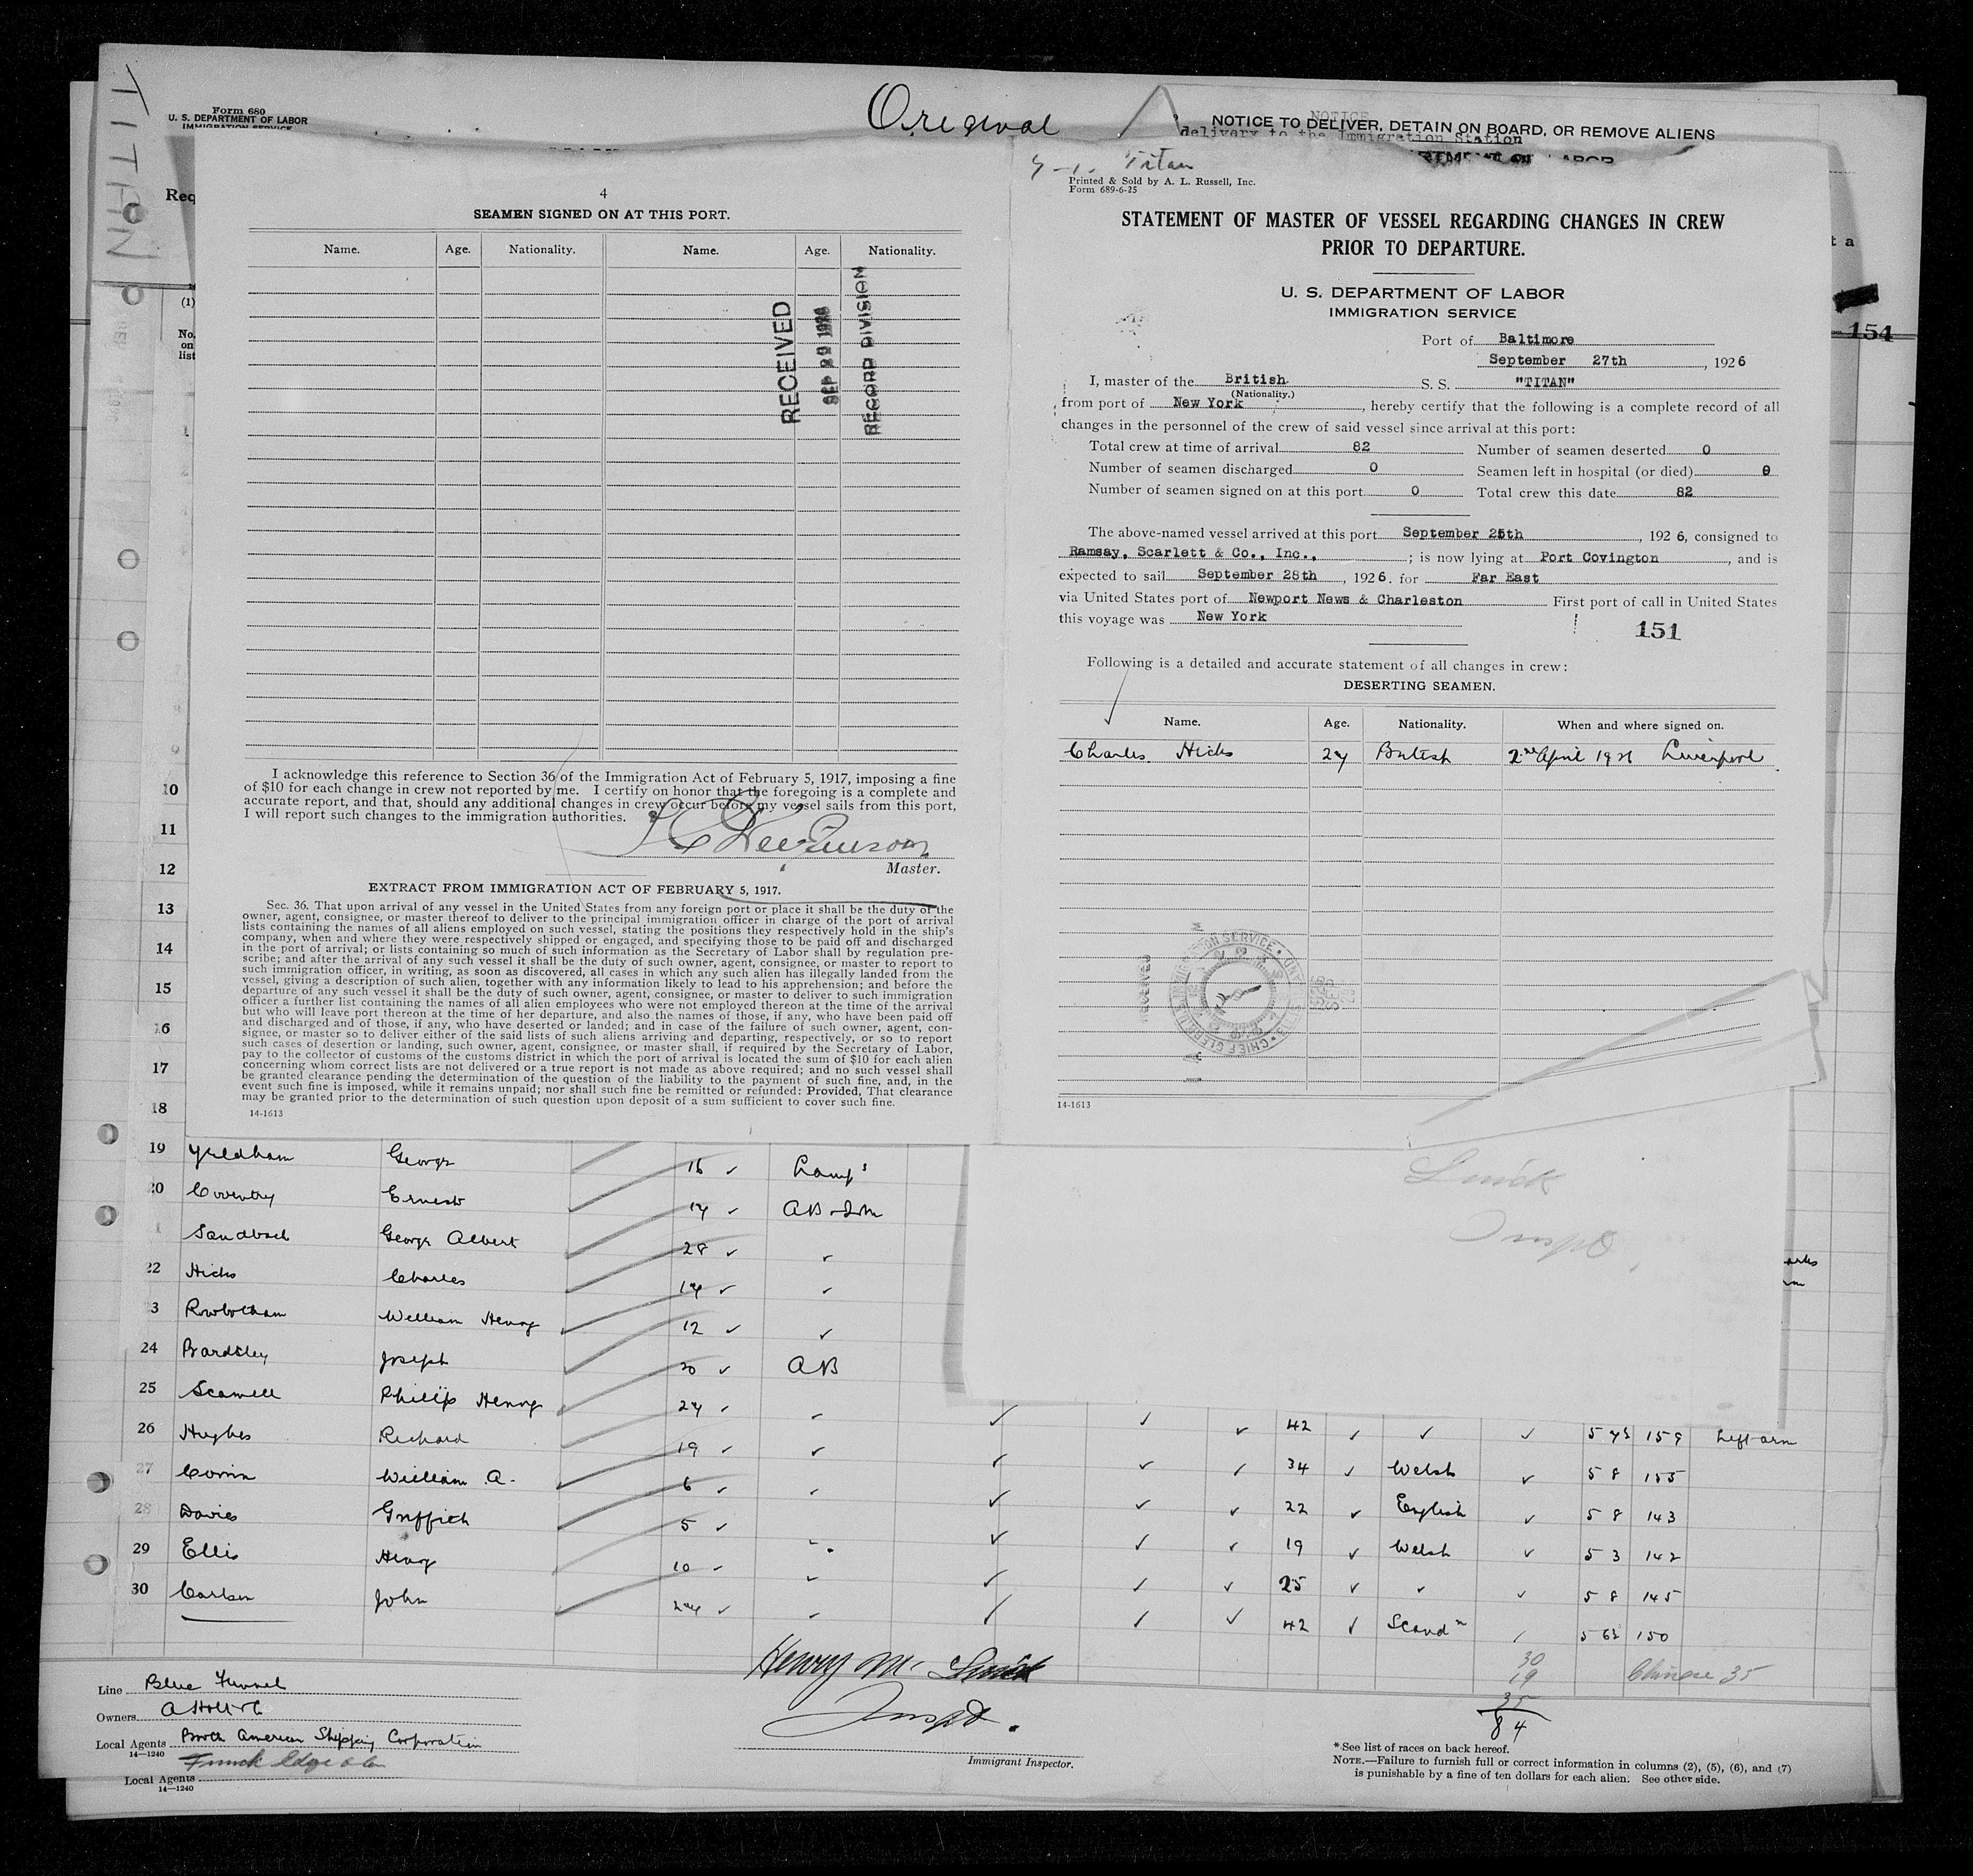 TITAN
Form 680
U. S. DEPARTMENT OF LABOR
IMMIGRATION SERVICE
Original
NOTICE
NOTICE TO DELIVER, DETAIN ON BOARD, OR REMOVE ALIENS
delivery to the Immigration Station
Req
(1)
No.
on
list
t a
154
4
SEAMEN SIGNED ON AT THIS PORT.
Name. Age. Nationality. Name. Age. Nationality.
RECEIVED
SEP 29 1926
RECORD DIVISION
I acknowledge this reference to Section 36 of the Immigration Act of February 5, 1917, imposing a fine
of $10 for each change in crew not reported by me. I certify on honor that the foregoing is a complete and
accurate report, and that, should any additional changes in crew occur before my vessel sails from this port,
I will report such changes to the immigration authorities.
Master.
EXTRACT FROM IMMIGRATION ACT OF FEBRUARY 5, 1917.
Sec. 36. That upon arrival of any vessel in the United States from any foreign port or place it shall be the duty of the
owner, agent, consignee, or master thereof to deliver to the principal immigration officer in charge of the port of arrival
lists containing the names of all aliens employed on such vessel, stating the positions they respectively hold in the ship's
company, when and where they were respectively shipped or engaged, and specifying those to be paid off and discharged
in the port of arrival; or lists containing so much of such information as the Secretary of Labor shall by regulation pre-
scribe; and after the arrival of any such vessel it shall be the duty of such owner, agent, consignee, or master to report to
such immigration officer, in writing, as soon as discovered, all cases in which any such alien has illegally landed from the
vessel, giving a description of such alien, together with any information likely to lead to his apprehension; and before the
departure of any such vessel it shall be the duty of such owner, agent, consignee, or master to deliver to such immigration
officer a further list containing the names of all alien employees who were not employed thereon at the time of the arrival
but who will leave port thereon at the time of her departure, and also the names of those, if any, who have been paid off
and discharged and of those, if any, who have deserted or landed; and in case of the failure of such owner, agent, con-
signee, or master so to deliver either of the said lists of such aliens arriving and departing, respectively, or so to report
such cases of desertion or landing, such owner, agent, consignee, or master shall, if required by the Secretary of Labor,
pay to the collector of customs of the customs district in which the port of arrival is located the sum of $10 for each alien
concerning whom correct lists are not delivered or a true report is not made as above required; and no such vessel shall
be granted clearance pending the determination of the question of the liability to the payment of such fine, and, in the
event such fine is imposed, while it remains unpaid; nor shall such fine be remitted or refunded: Provided, That clearance
may be granted prior to the determination of such question upon deposit of a sum sufficient to cover such fine.
14-1613
Titan
Printed & Sold by A. L. Russell, Inc.
Form 689-6-25
STATEMENT OF MASTER OF VESSEL REGARDING CHANGES IN CREW
PRIOR TO DEPARTURE.
U. S. DEPARTMENT OF LABOR
IMMIGRATION SERVICE
Port of Baltimore
September 27th, 1926
I, master of the British S. S. "TITAN"
(Nationality.)
from port of New York, hereby certify that the following is a complete record of all
changes in the personnel of the crew of said vessel since arrival at this port:
Total crew at time of arrival 82 Number of seamen deserted 0
Number of seamen discharged 0 Seamen left in hospital (or died) 0
Number of seamen signed on at this port 0 Total crew this date 82
The above-named vessel arrived at this port September 25th, 1926, consigned to
Ramsay, Scarlett & Co., Inc., ; is now lying at Port Covington, and is
expected to sail September 28th, 1926. for Far East
via United States port of Newport News & Charleston First port of call in United States
this voyage was New York
151
Following is a detailed and accurate statement of all changes in crew:
DESERTING SEAMEN.
Name. Age. Nationality. When and where signed on.
Charles Hicks 27 British 2nd April 1926 Liverpool
14-1613
10
11
12
13
14
15
16
17
18
19 Yeldham George 16 Lamps
20 Coventry Ernest 17
Sandbach George Albert 28
22 Hicks Charles 14
3 Rowbotham William Henry 12
24 Bardsley Joseph 20 AB
25 Scawell Phillip Henry 27 42 159 Left arm
26 Hughes Richard 19 34 Welsh 5 8 155
27 Corrin William A. 6 22 English 5 8 143
28 Davies Griffith 5 19 Welsh 5 3 142
29 Ellis Henry 10 25 5 8 145
30 Carlsen John 42 Scandn 150
Smick
Inspt.
Henry M. Smick
Inspt.
Immigrant Inspector.
30
19
35
84
Chinese 35
Line Blue Funnel
Owners A Holt & Co
Local Agents North American Shipping Corporation
14—1240
Funch Edye & Co
Local Agents
14—1240
*See list of races on back hereof.
NOTE.—Failure to furnish full or correct information in columns (2), (5), (6), and (7)
is punishable by a fine of ten dollars for each alien. See other side.